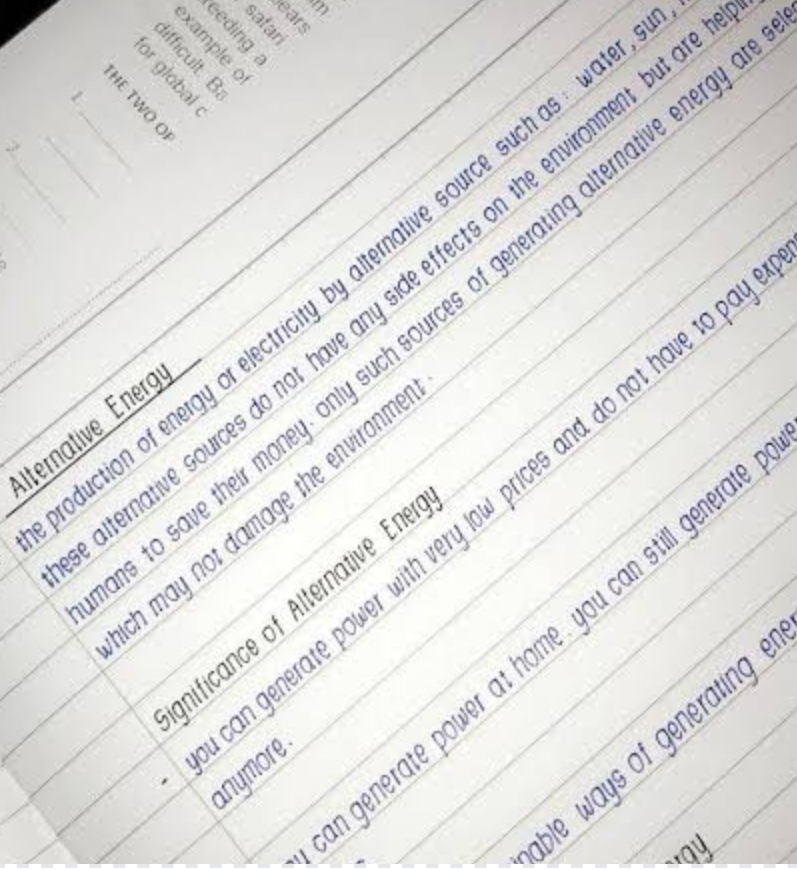 example of
difficult. Ba
for global c
THE TWO OP
1.
2.
Alternative Energy
the production of energy or electricity by alternative source such as : water, sun,
these alternative sources do not have any side effects on the environment but are
humans to save their money. only such sources of generating alternative energy are
which may not damage the environment.
Significance of Alternative Energy
- you can generate power with very low prices and do not have to pay
anymore.
can generate power at home. you can still generate
ways of generating